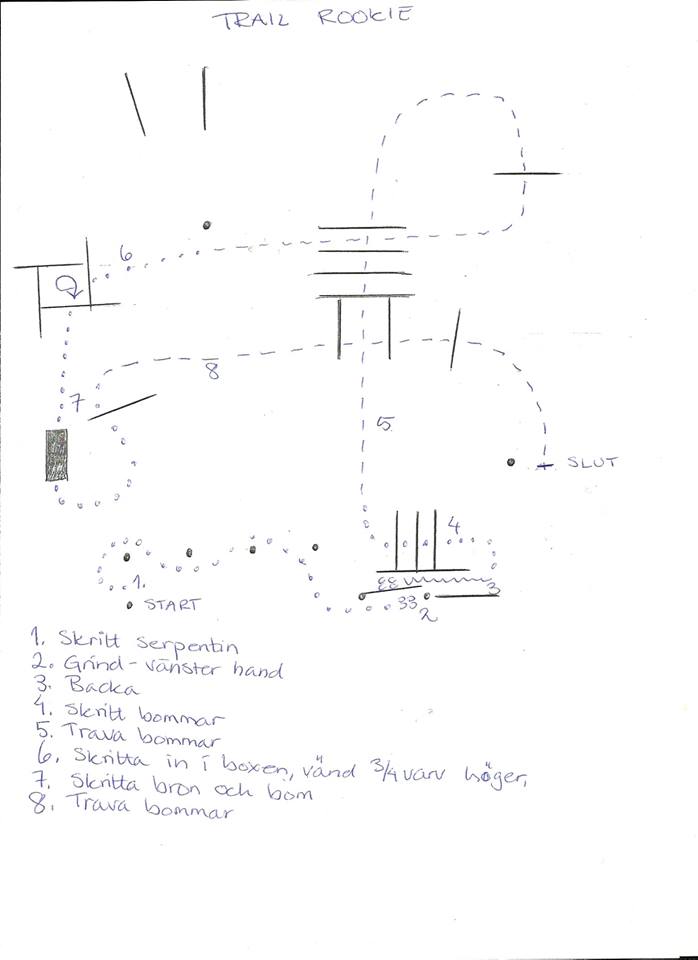 TRAIL ROOKIE
6
7
8
5
SLUT
4
1.
3
2
START
1. Skritt serpentin
2. Grind - vänster hand
3. Backa
4. Skritt bommar
5. Trava bommar
6. Skritta in i boxen, vänd 3/4 varv höger,
7. Skritta bron och bom
8. Trava bommar